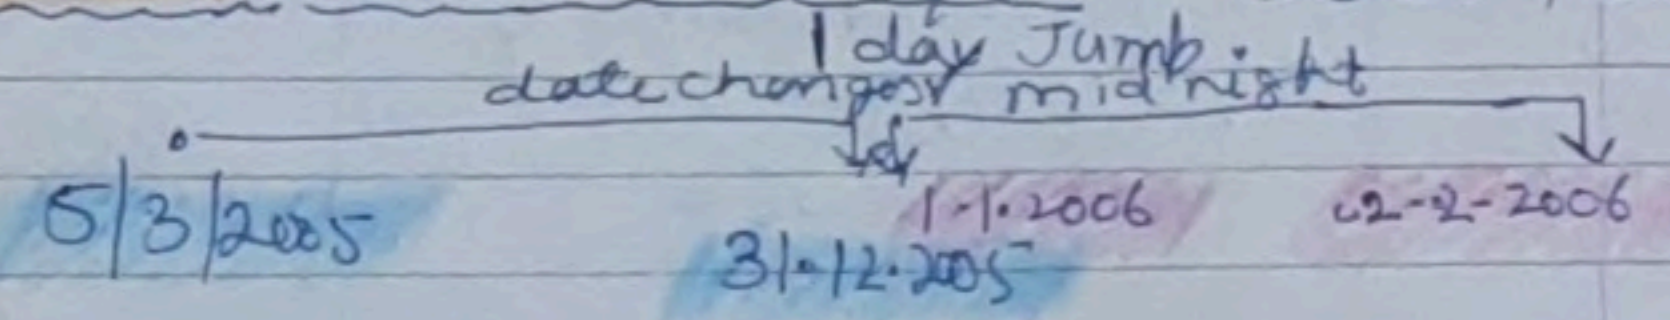 1 day Jumb.
date changes midnight
5/3/2005
1.1.2006
2-2-2006
31.12.2005